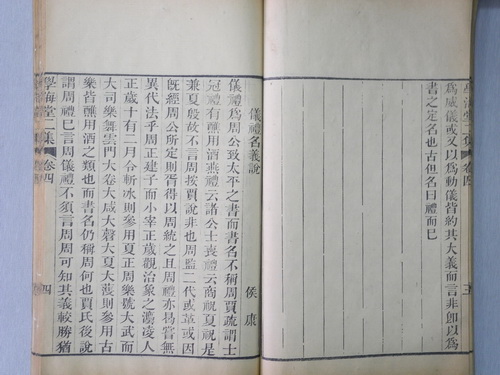 學海堂二集
卷四
五
為威儀或又以為動儀皆約其大義而言非卽以為
書之定名也古但名曰禮而已
儀禮名義說
侯康
儀禮為周公致太平之書而書名不稱周賈疏謂士
冠禮有醮用酒燕禮云諸公士喪禮云商祝夏祝是
兼夏殷故不言周按賈說非也周監二代或革或因
旣經周公所定則胥得以周統之且周禮亦曷嘗無
異代法乎周正建子而小宰正歲觀治象之灋凌人
正歲十有二月令斬冰則參用夏正周樂號大武而
大司樂舞雲門大卷大咸大磬大夏大濩則參用古
樂皆醮用酒之類也而書名仍稱周何也賈氏後說
謂周禮已言周儀禮不須言周周可知其義較勝猶
學海堂二集
卷四
四